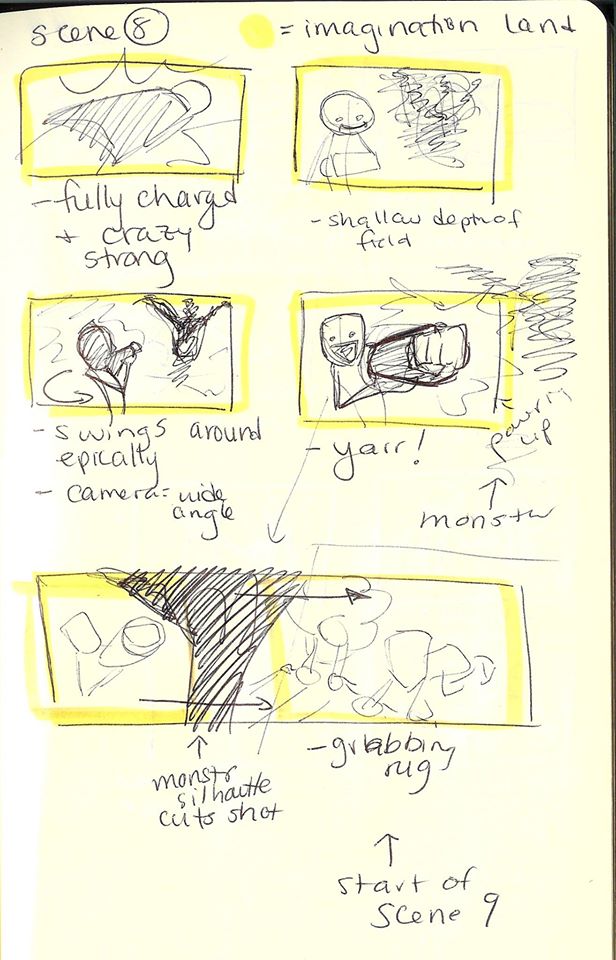 scene 8
= imagination land
- fully charged
+ crazy
strong
- shallow depth of
field
- swings around
epically
- camera = wide
angle
- yarr!
powering
up
monster
- grabbing
rug
monstr
silhoutte
cuts shot
start of
scene 9